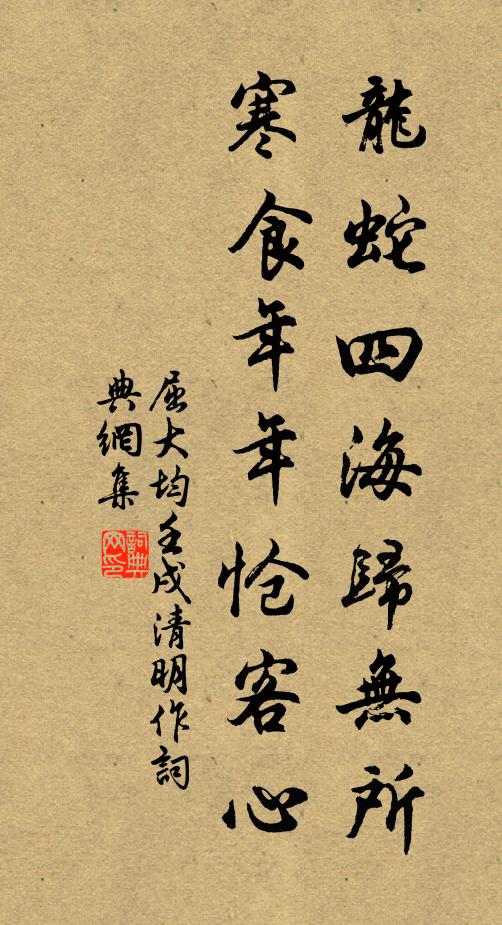 龍蛇四海歸無所
寒食年年怆客心
屈大均壬戌清明作詞
典網集
詞典
网印